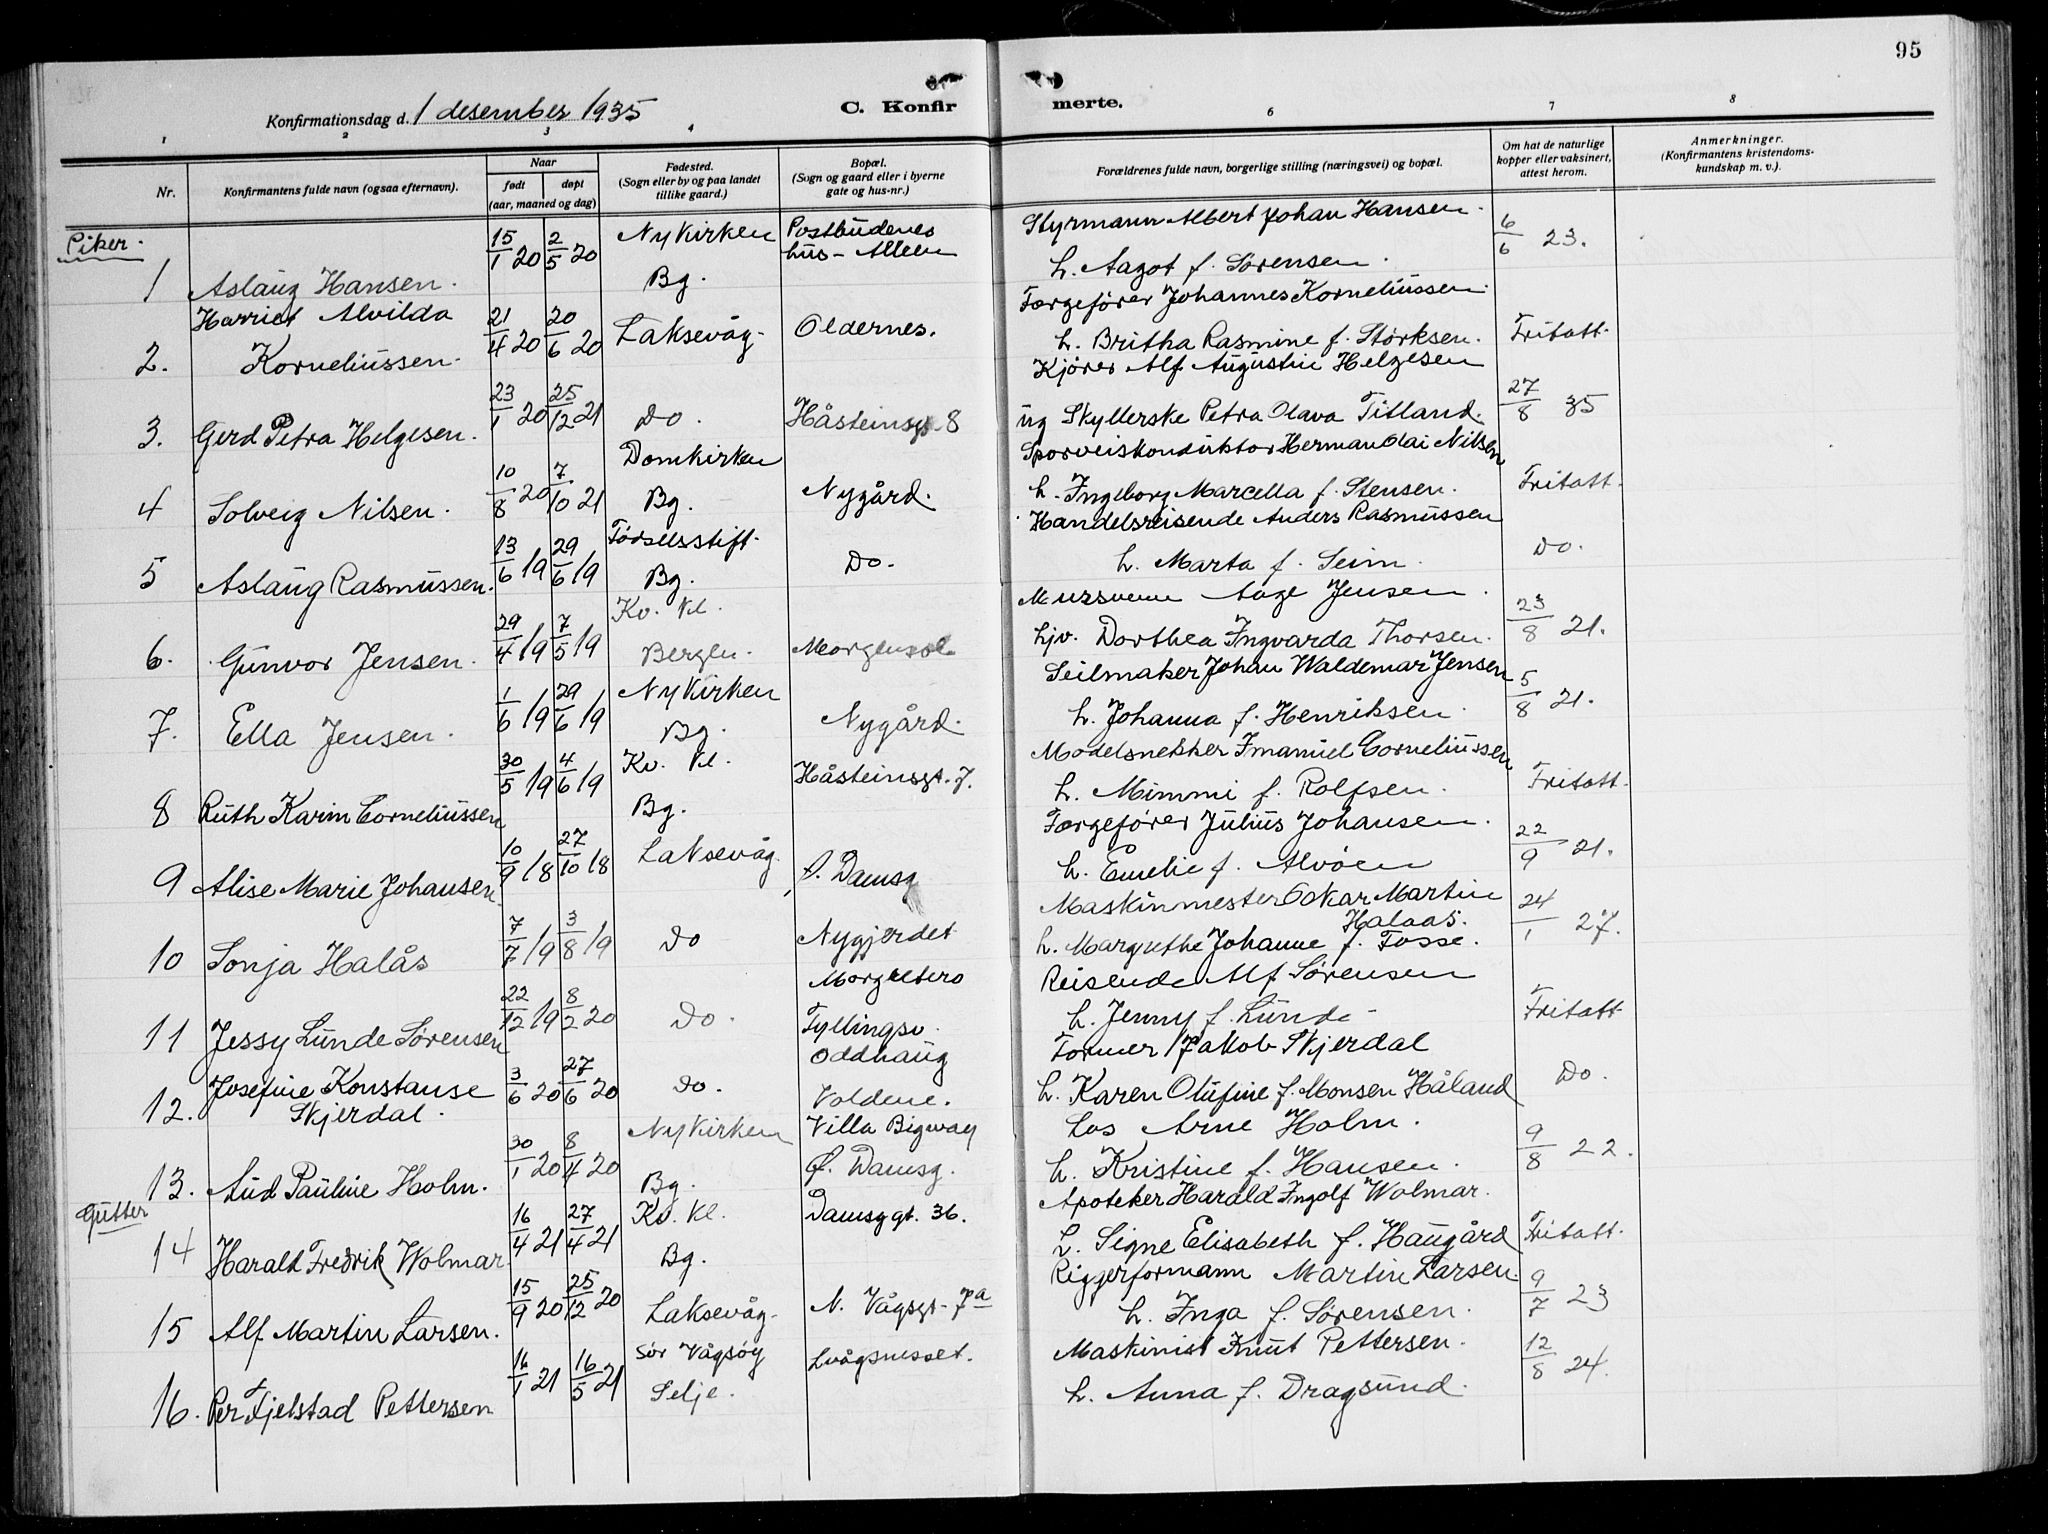 95
Konfirmationsdag d. 1 desember 1935
C. Konfir merte.
1 2 3 4 6 7 8
Nr.
Konfirmantens fulde navn (ogsaa efternavn).
Naar
født døpt
(aar, maaned og dag)
Fødested.
(Sogn eller by og paa landet
tillike gaard.)
Bopæl.
(Sogn og gaard eller i byerne
gate og hus-nr.)
Forældrenes fulde navn, borgerlige stilling (næringsvei) og bopæl.
Om hat de naturlige
kopper eller vaksinert,
attest herom.
Anmerkninger.
(Konfirmantens kristendoms-
kundskap m. v.).
Piker.
1 Aslaug Hansen. 15/1 20 2/5 20 Nykirken Bg. Postbudenes hus - Alleen Styrmann Albert Johan Hansen. h. Aagot f. Sørensen. 6/6 23.
2. Harriet Alvilda Korneliussen. 21/4 20 20/6 20 Laksevåg. Oldernes. Færgefører Johannes Korneliussen. h. Britha Rasmine f. Størksen. Fritatt.
3. Gerd Petra Helgesen. 23/1 20 25/12 21 Do. Håsteinsgt. 8 Kjører Alf Augustin Helgesen ug Skyllerske Petra Olava Titland. 27/8 35
4 Solveig Nilsen. 10/8 20 7/10 21 Domkirken Bg. Nygård. Sporveiskonduktør Herman Olai Nilsen h. Ingeborg Marcella f. Stensen. Fritatt.
5 Aslaug Rasmussen. 13/6 19 29/6 19 Fødselsstift. Bg. Do. Handelsreisende Anders Rasmussen h. Marta f. Seim. Do.
6. Gunvor Jensen. 29/4 19 7/5 19 Kv. Kl. Bergen. Morgensol. Murssvenn Aage Jensen. hjv. Dorthea Ingvarda Thorsen. 23/8 21.
7. Ella Jensen. 1/6 19 29/6 19 Nykirken Bg. Nygård. Seilmaker Johan Waldemar Jensen h. Johanna f. Henriksen. 5/8 21.
8 Ruth Karin Corneliussen 30/5 19 4/6 19 Kv. Kl. Bg. Håsteinsgt. 7. Modelsnekker Imanuel Corneliussen h. Mimmi f. Rolfsen. Fritatt.
9 Alise Marie Johansen. 10/9 18 27/10 18 Laksevåg. Ø. Damsg Færgefører Julius Johansen. h. Emelie f. Alvöen 22/9 21.
10 Sonja Halås 7/7 19 3/8 19 Do Nygjerdet Maskinmester Oskar Martin Halaas. h. Margrethe Johanne f. Fosse. 24/1 27.
11 Jessy Lunde Sørensen 22/12 19 8/2 20 Do. Morgenbero Fyllingsv. Reisende Alf Sørensen h. Jenny f. Lunde. Fritatt
12. Josefine Konstanse Skjerdal. 3/6 20 27/6 20 Do. Oddhaug Voldene. Former Jakob Skjerdal h. Karen Olufine f. Monsen Håland Do.
13. Aud Pauline Holm. 30/1 20 8/4 20 Nykirken Bg. Villa Bigway Ø. Damsg. Los Arne Holm. h. Kristine f. Hansen. 9/8 22.
Gutter
14 Harald Fredrik Wolmar 16/4 21 27/4 21 Kv. Kl. Bg. Damsggt. 36. Apoteker Harald Ingolf Wolmar. h. Signe Elisabeth f. Haugård Fritatt.
15 Alf Martin Larsen. 15/9 20 25/12 20 Laksevåg. N. Vågsgt. 7a Riggerformann Martin Larsen. h. Inga f. Sørensen. 9/7 23
16. Per Fjelstad Pettersen 16/1 21 16/5 21 Sør Vågsøy Selje. Lvågsnesset. Maskinist Knut Pettersen. h. Anna f. Dragsund. 12/8 24.